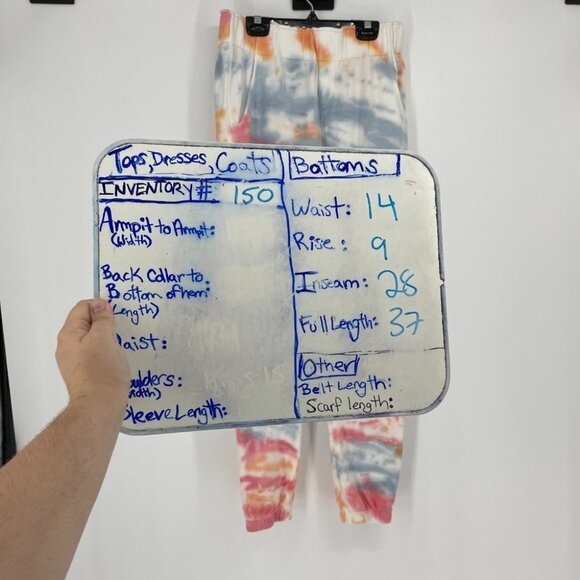 Tops, Dresses, Coats
INVENTORY # 150
Armpit to Armpit:
(Width)
Back Collar to
Bottom of hem
Length)
aist:
oulders:
idth)
Sleeve Length:
Bottoms
Waist: 14
Rise: 9
Inseam: 28
Full Length: 37
Other
Belt Length:
Scarf length: